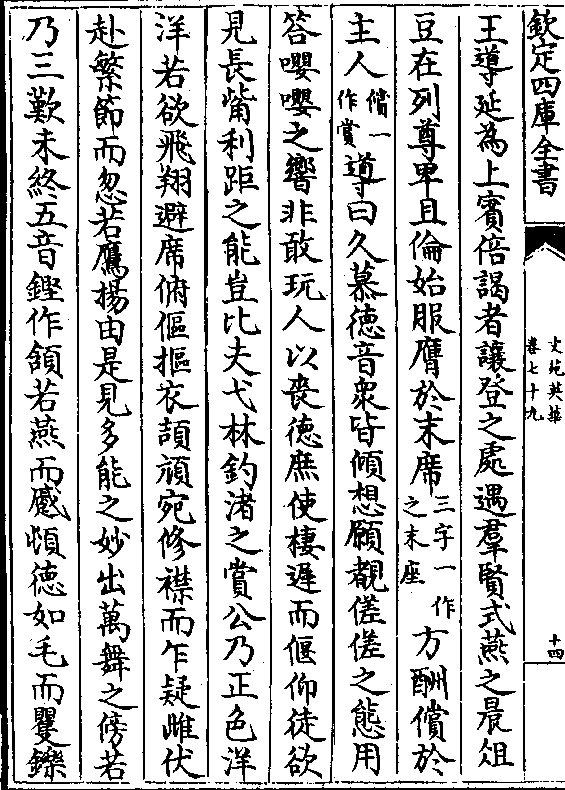 欽定四庫全書
文苑英華
卷七十九
十四
王導延為上賓倍謁者讓登之處遇羣賢式燕之晨俎
豆在列尊卑且倫始服膺於末席三字一作之末座方酬償於
主人償一作賞導曰久慕德音衆皆傾想願覩傞傞之態用
答嚶嚶之響非敢玩人以喪德庶使棲遲而偃仰徒欲
見長觜利距之能豈比夫弋林釣渚之賞公乃正色洋
洋若欲飛翔避席俯傴摳衣頡頏宛修襟而乍疑雌伏
赴繁節而忽若鷹揚由是見多能之妙出萬舞之傍若
乃三歎未終五音鏗作頷若燕而蹙頞德如毛而矍鑠